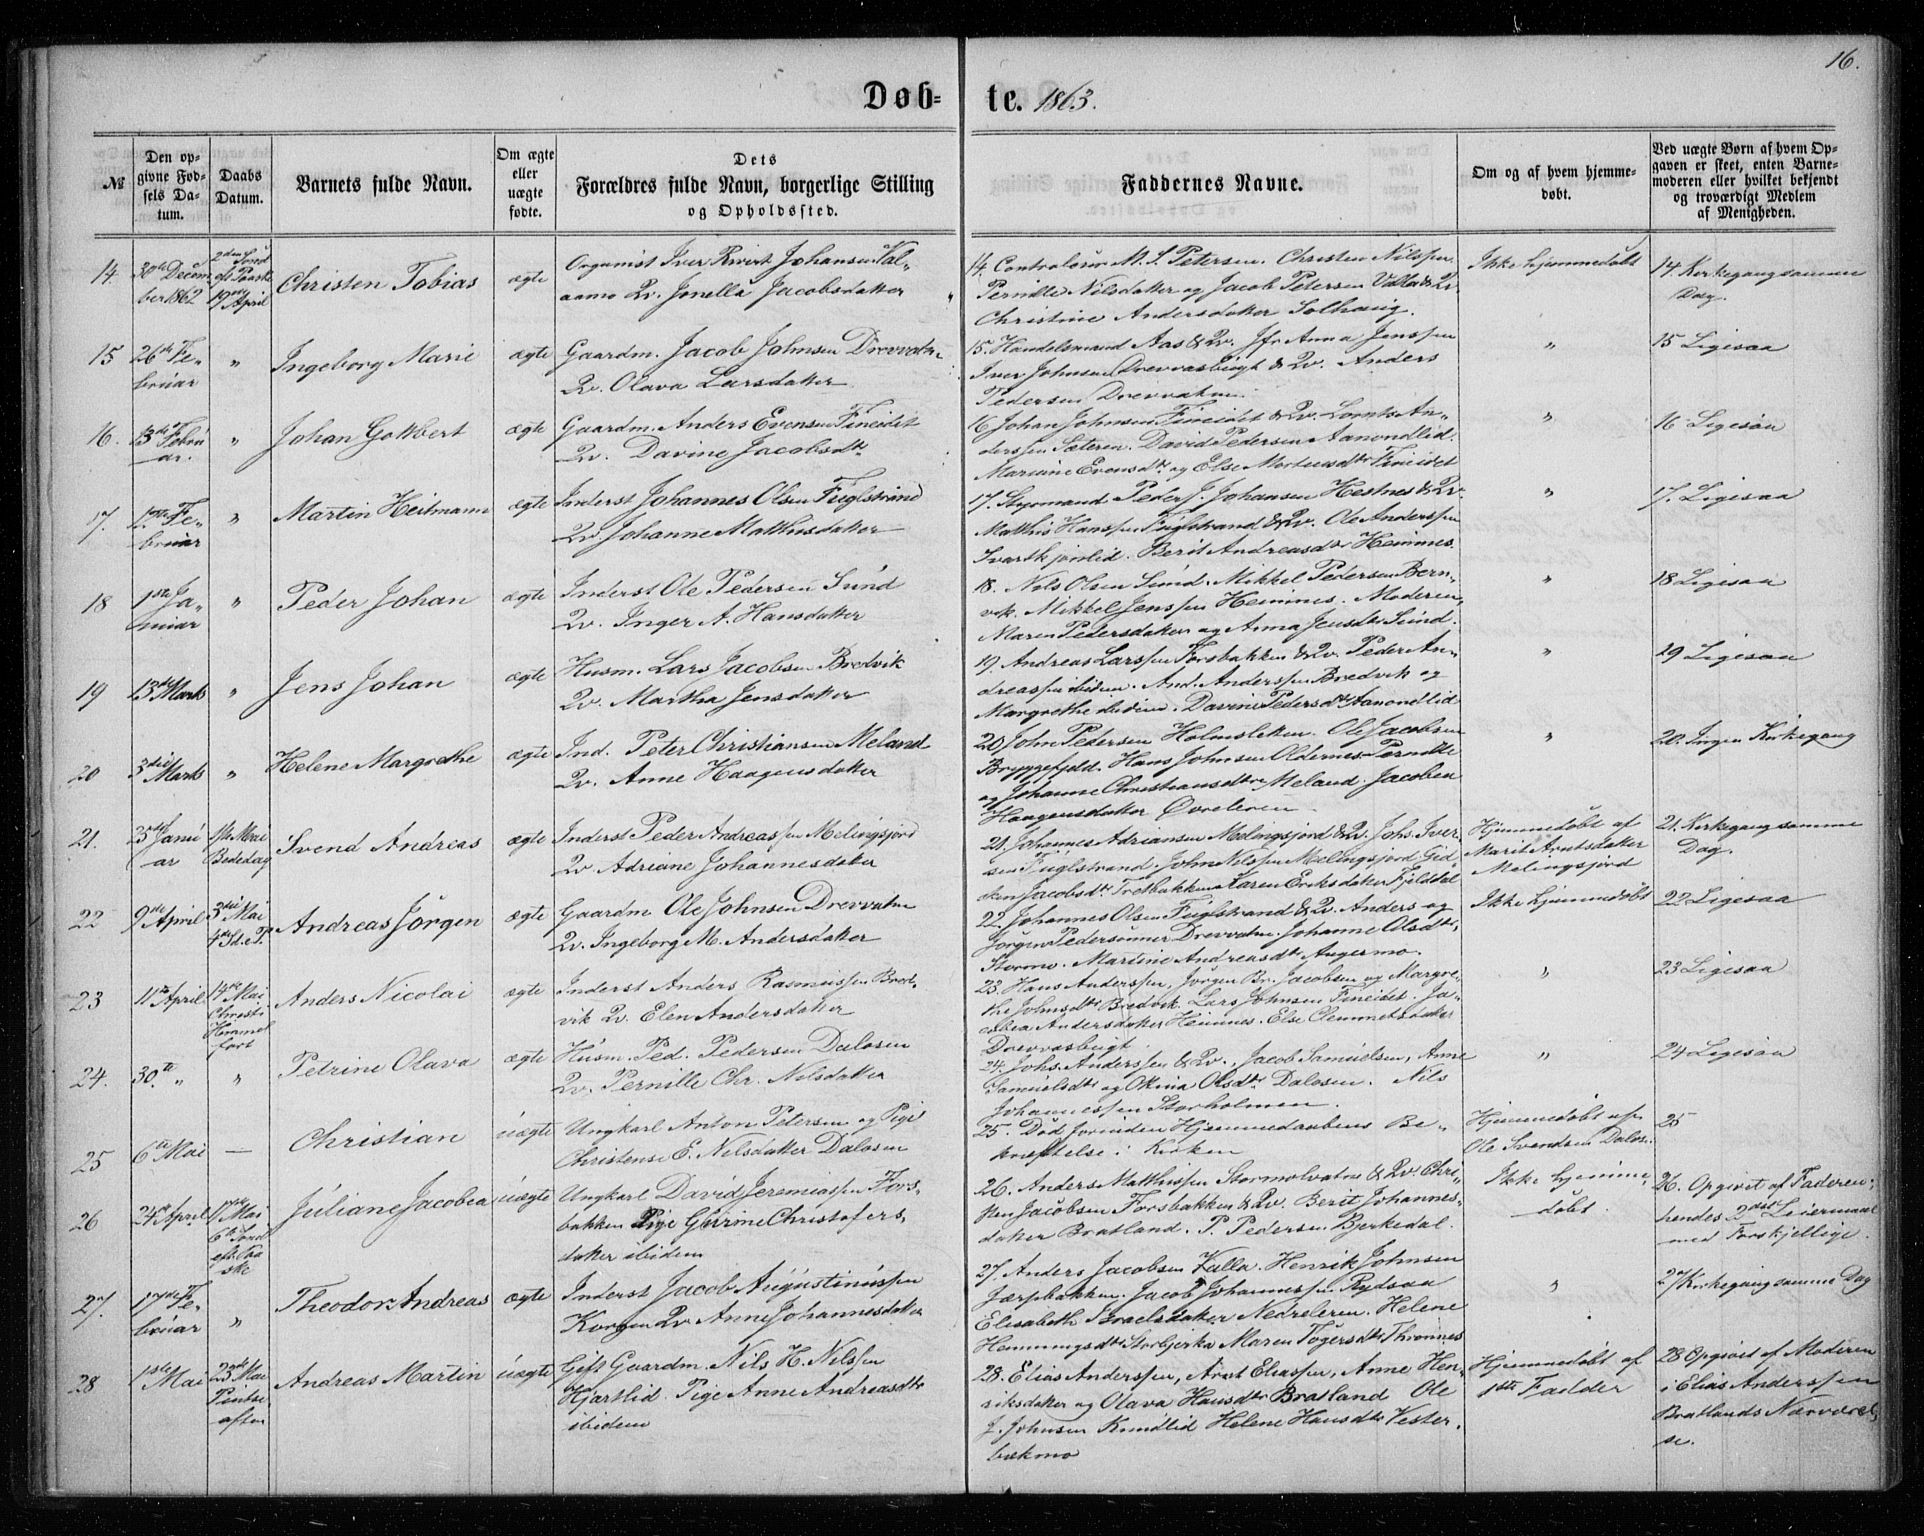 16.
Døb- te. 1863.
№
Den op-
givne Fød-
sels Da-
tum.
Daabs
Datum.
Barnets fulde Navn.
Om ægte
eller
uægte
fødte.
Dets
Forældres fulde Navn, borgerlige Stilling
og Opholdssted.
Faddernes Navne.
Om og af hvem hjemme-
døbt.
Ved uægte Børn af hvem Op-
gaven er skeet, enten Barne-
moderen eller hvilket bekjendt
og troværdigt Medlem
af Menigheden.
14.
30te Decem
ber 1862
2den Sønd
eft Paaske
19de April
Christen Tobias
ægte
Organist Iver Johansen Val„
aamo Qv. Jonella Jacobsdatter
14. Contralour M. S. Petersen. Christen Nilssen.
Pernille Nilsdatter og Jacob Petersen Valla & Qv.
Christine Andersdatter Solhaug.
Ikke hjemmedøbt
14 Kirkegang samme
Dag.
15
26de Fe„
bruar
„
Ingeborg Marie
ægte
Gaardm. Jacob Johnsen Drevvatn
Qv. Olava Larsdatter
15. Handelsmand Aas & Qv. Jfr Anna Jenssen
Iver Johnsen Drevvasbugt & Qv. Anders
Pedersen Drevvatn.
„
15 Ligesaa
16.
13de Febru
ar.
„
Johan Gotbert
ægte
Gaardm. Anders Evensen Fineidet
Qv. Davine Jacobsdtr
16 Johan Johnsen Fineidet & Qv. Lornts An„
derssen Sæteren. David Pedersen Aanondlid.
Mariane Evensdtr og Else Mortensdtr Fineidet
„
16 Ligesaa
17.
1ste Fe„
bruar
„
Martin Heitmann
ægte
Inderst Johannes Olsen Fuglstrand
Qv Johanne Mathisdatter
17. Styrmand Peder J. Johansen Hestnes & Qv.
Mathis Hanssen Fuglstrand & Qv. Ole Anderssen
Svartkjønlid. Berit Andreasdtr Hemnes.
„
17. Ligesaa
18
1ste Ja„
nuar
„
Peder Johan
ægte
Inderst Ole Pedersen Sund
Qv. Inger A. Hansdatter
18. Nils Olsen Sund. Mikkel Pedersen Bern„
vik. Mikkel Jenssen Hemnes. Moderen,
Maren Pedersdatter og Anna Jensdtr Sund.
„
18 Ligesaa
19
13de Marts
„
Jens Johan
ægte
Husm. Lars Jacobsen Bredvik
Qv. Martha Jensdatter
19. Andreas Larssen Forsbakken & Qv. Peder An„
dreassen ibidem. And. Anderssen Bredvik og
Margrethe ibidem. Davine Pedersdtr Aanondlid
„
19 Ligesaa
20
3die Marts
„
Helene Margrethe
ægte
Ind. Peter Christiansen Meland
Qv. Anne Haagensdatter
20 John Pedersen Holmsleten. Ole Jacobsen
Bryggefjeld. Hans Johnsen Oldernes. Pernille
og Johanne Christiansdtr Meland. Jacobea
Haagensdatter Øvreleren
„
20. Ingen Kirkegang
21.
3die Janu
ar
1ste Mai
Bededag
Svend Andreas
ægte
Inderst Peder Andreassen Melingsjord
Qv Adriane Johannesdatter
21. Johannes Adriansen Melingsjord & Qv. Johs. Iver„
sen Fuglstrand. John Nilssen Melingsjord. Gid„
sken Jacobsdtr Tretbakken. Karen Eriksdatter Fjeldtal
Hjemmedøbt af
Marit Arntsdatter
Melingsjord
21. Kirkegang samme
Dag.
22
9de April
3die Mai
4de Sd. e. P.
Andreas Jørgen
ægte
Gaardm Ole Johnsen Drevvatn
Qv. Ingeborg M. Andersdatter
22. Johannes Olsen Fuglstrand & Qv. Anders og
Jørgen Pedersønner Drevvatn. Johanne Olsdtr,
Stormo. Martine Andreasdtr Angermo.
Ikke hjemmedøbt
22 Ligesaa
23
11te April
14de Mai
Christi
Himmel
fart
Anders Nicolai
ægte
Inderst Anders Rasmussen Bred„
vik Qv. Elen Andersdatter
23. Hans Anderssen, Jørgen Br. Jacobsen og Margre„
the Johnsdtr Bredvik. Lars Johnsen Fineidet. Ja„
cobea Andersdatter Hemnes. Else Clemmetsdatter
Drevvasbugt.
„
23 Ligesaa
24.
30te „
„
Petrine Olava
ægte
Husm. Ped. Pedersen Dalosen
Qv. Pernille Chr. Nilsdatter
24. Johs. Anderssen & Qv. Jacob Samuelsen, Anne
Samuelsdtr og Okina Olsdtr Dalosen. Nils
Johannessen Storholmen.
„
24 Ligesaa
25
6te Mai
—
Christian
uægte
Ungkarl Anton Petersen og Pige
Christense E. Nilsdatter Dalosen
25. Død forinden Hjemmedaabens Be„
kræftelse i Kirken
Hjemmedøbt af
Ole Svendsen Dalos.
25
26
24de April
17de Mai
6te Sønd
eft. Paa
ske
Juliane Jacobea
uægte
Ungkarl David Jeremiassen Fors„
bakken Pige Gurine Christofers„
datter ibidem
26. Anders Matthissen Stormolvatn & Qv. Chri„
sten Jacobsen Forsbakken & Qv. Berit Johannes„
datter Bratland. P. Pedersen Bjerkedal.
Ikke hjemme„
døbt.
26. Opgivet af Faderen,
hendes 2det Leiermaal
med Forskjellige.
27.
17de Fe„
bruar
„
Theodor Andreas
ægte
Inderst Jacob Augustinussen
Korgen Qv Anne Johannesdatter
27. Anders Jacobsen Valla. Henrik Johnsen
Jærpbakken. Jacob Johannessen Rydsaa
Elisabeth Israelsdatter Nedreleren. Helene
Hemmingsdtr Storbjerka Maren Tøgersdtr Thronnes
„
27 Kirkegang samme Dag
28
1ste Mai
23de Mai
Pintse
aften
Andreas Martin
uægte
Gift Gaardm. Nils H. Nilssen
Hjartlid. Pige Anne Andreasdtr
ibidem
28. Elias Anderssen, Arnt Eliassen, Anne Hen„
riksdatter og Olava Hansdtr Bratland Ole
J. Johnsen Kundlid Helene Hansdtr Vester„
bækmo
Hjemmedøbt af
1ste Fadder
28 Opgivet af Moderen
i Elias Anderssen
Bratlands Nærværel„
se.